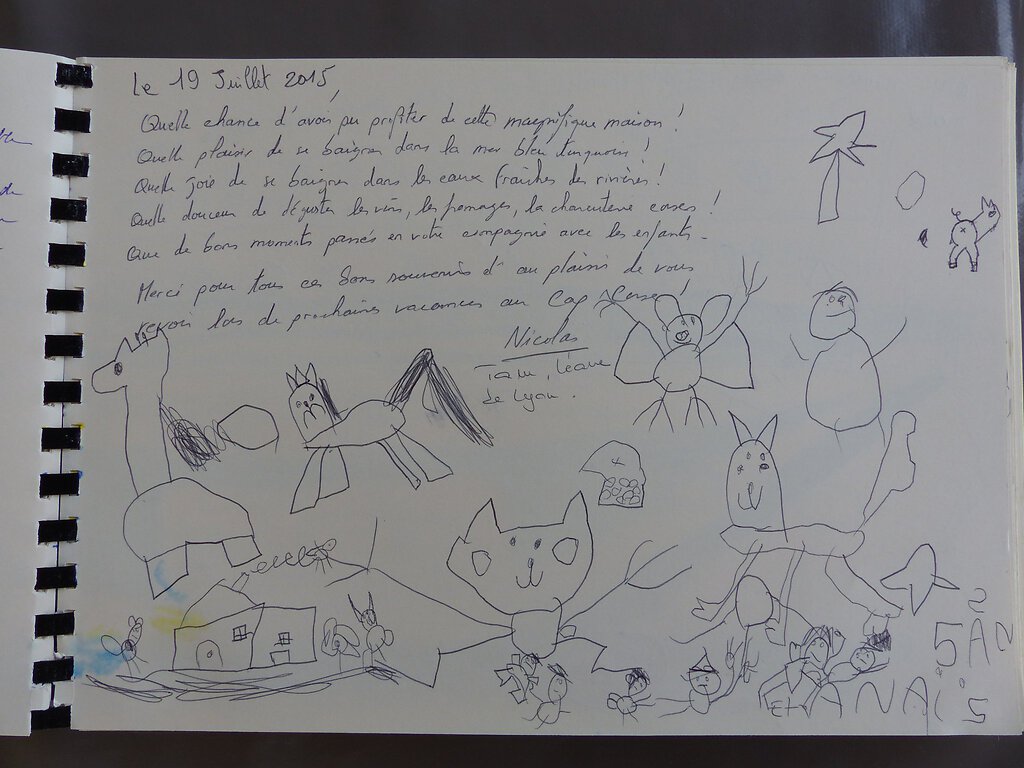 Le 19 Juillet 2015,
Quelle chance d'avoir pu profiter de cette magnifique maison !
Quelle plaisir de se baigner dans la mer bleu turquoise !
Quelle joie de se baigner dans les eaux fraîches des rivières !
Quelle douceur de déguster les vins, les fromages, la charcuterie corses !
Que de bons moments passés en votre compagnie avec les enfants.
Merci pour tous ces bons souvenirs et au plaisir de vous
revoir lors de prochaines vacances au Cap Corse !
Nicolas
de Lyon.
5 AN